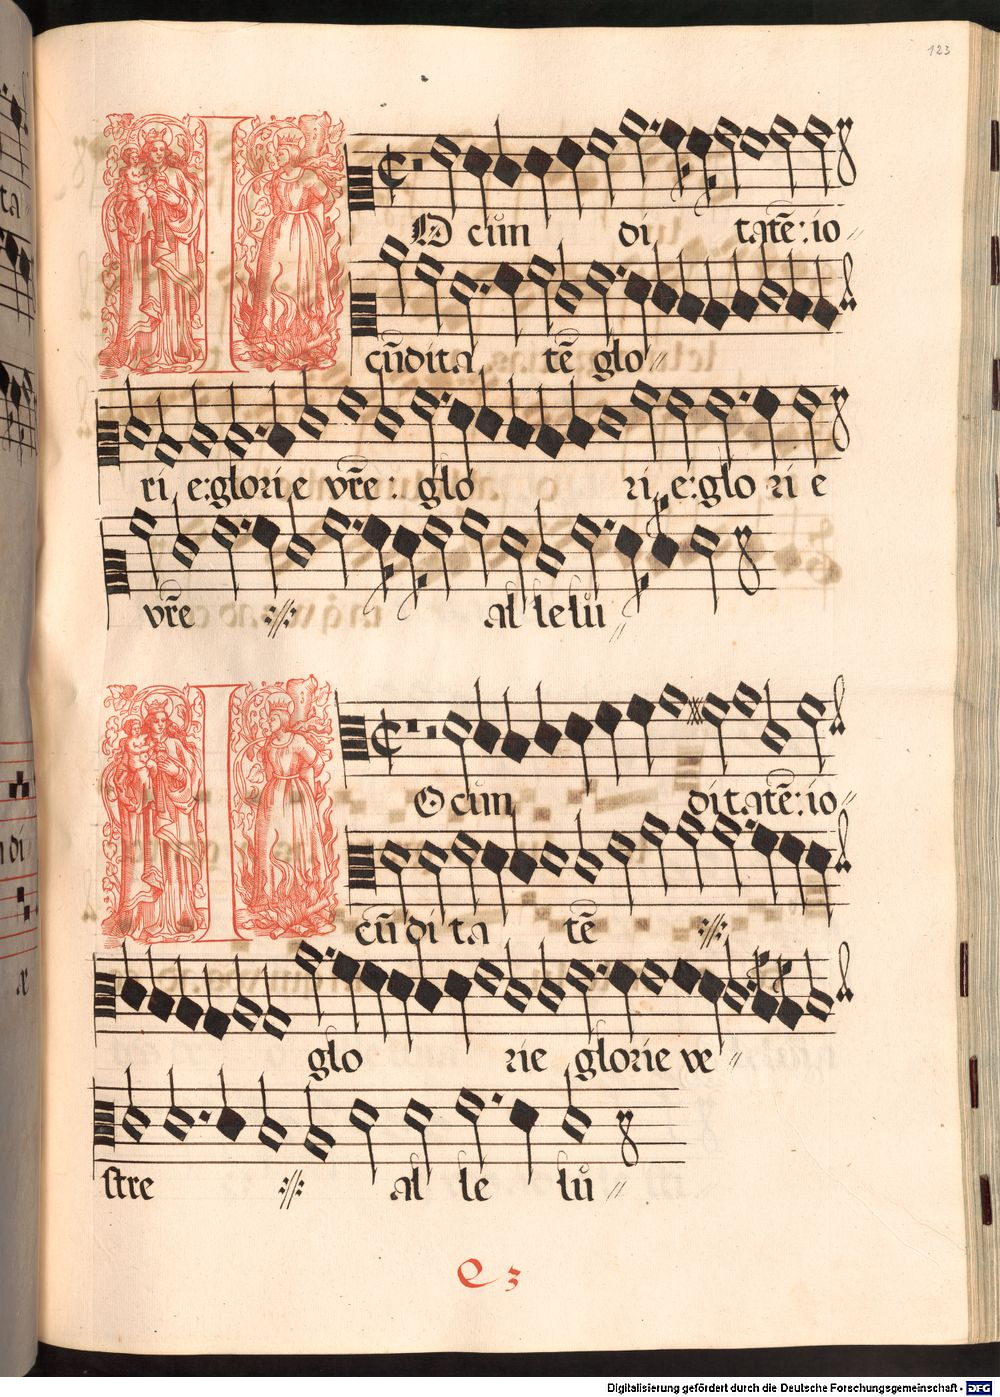 123
IOcūn di tatē: io
cūdita tē glo
ri e: glori e vr̄e: glo ri e: glo ri e
vr̄e alleluͦ
IOcūn ditatē: io
cūdi ta tē
glo rie glorie ve
stre al le luͦ
e 3
Digitalisierung gefördert durch die Deutsche Forschungsgemeinschaft - DFG